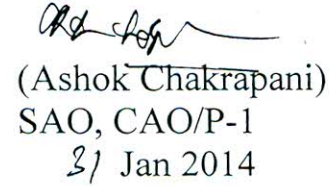 (Ashok Chakrapani)
SAO, CAO/P-1
31 Jan 2014